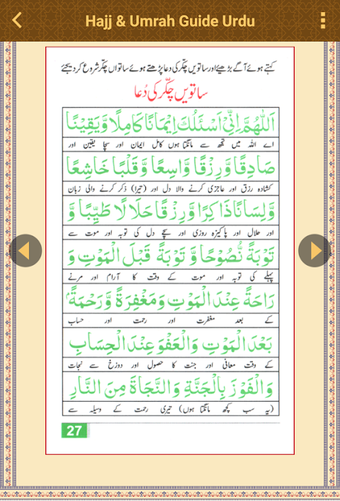 Hajj & Umrah Guide Urdu
کہتے ہوئے آگے بڑھیئے اور ساتویں چکّر کی دعا پڑھتے ہوئے ساتواں چکّر شروع کر دیجئے
ساتویں چکّر کی دُعا
اَللّٰهُمَّ اِنِّیْ اَسْئَلُكَ اِیْمَانًا كَامِلًا وَّیَقِیْنًا
اے اللہ میں تجھ سے مانگتا ہوں کامل ایمان اور سچا یقین اور
صَادِقًا وَّرِزْقًا وَّاسِعًا وَّقَلْبًا خَاشِعًا
کشادہ رزق اور عاجزی کرنے والا دل اور (تیرا) ذکر کرنے والی زبان
وَّلِسَانًا ذَاكِرًا وَّرِزْقًا حَلَالًا طَیِّبًا وَّ
اور حلال اور پاکیزہ روزی اور سچے دل کی توبہ اور موت سے
تَوْبَةً نَّصُوْحًا وَّتَوْبَةً قَبْلَ الْمَوْتِ وَ
پہلے کی توبہ اور موت کے وقت کا آرام اور مرنے
رَاحَةً عِنْدَ الْمَوْتِ وَمَغْفِرَةً وَّرَحْمَةً
کے بعد مغفرت اور رحمت اور حساب
بَعْدَ الْمَوْتِ وَالْعَفْوَ عِنْدَ الْحِسَابِ
کے وقت معافی اور جنت کا حصول اور دوزخ سے نجات
وَالْفَوْزَ بِالْجَنَّةِ وَالنَّجَاةَ مِنَ النَّارِ
(یہ سب کچھ مانگتا ہوں) تیری رحمت کے وسیلہ سے
27